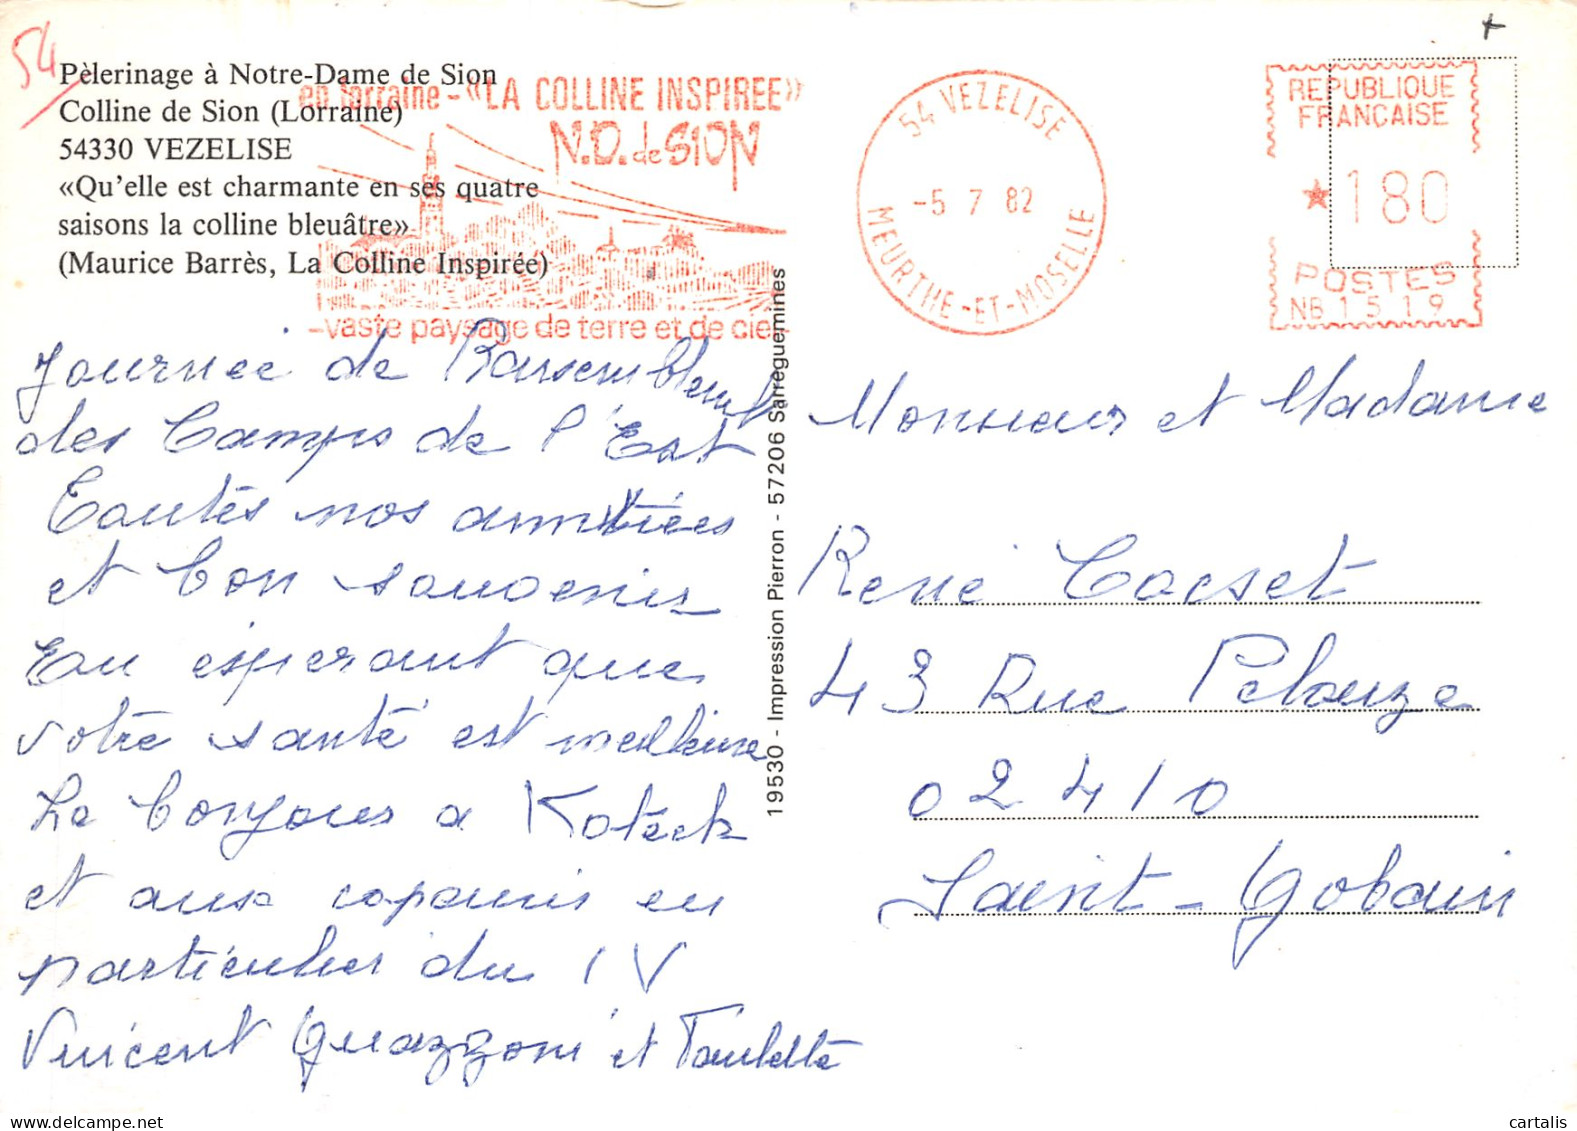 54
Pèlerinage à Notre-Dame de Sion
Colline de Sion (Lorraine)
54330 VEZELISE
«Qu'elle est charmante en ses quatre
saisons la colline bleuâtre»
(Maurice Barrès, La Colline Inspirée)
en lorraine - «LA COLLINE INSPIREE»
N.D. de SION
-vaste paysage de terre et de ciel-
54 VEZELISE
-5 7 82
MEURTHE-ET-MOSELLE
REPUBLIQUE
FRANCAISE
180
POSTES
NB 1519
Journée de Rassemblement
des Camps de l'Est
Toutes nos amitiées
et bon souvenir
En espérant que
votre santé est meilleure
Le bonjour a Koteck
et aux copains en
particulier du IV
Vincent Guazzoni et Paulette
19530 - Impression Pierron - 57206 Sarreguemines
Monsieur et Madame
René
43 Rue Pelouze
02410
Saint-Gobain
cartalis